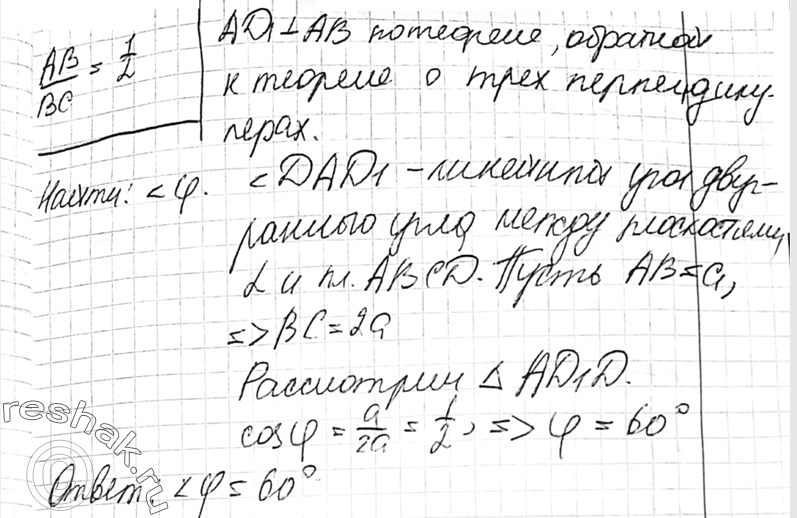 AB/BC = 1/2
AD1 ⊥ AB по теореме, обратной
к теореме о трех перпендику-
лерах.
Найти: <φ.
<DAD1 - линейный угол двуг-
ранного угла между плоскостями
α и пл. ABCD. Пусть AB = a,
=> BC = 2a
Рассмотрим △ AD1D.
cosφ = a/2a = 1/2, => φ = 60°
Ответ: <φ = 60°
reshak.ru